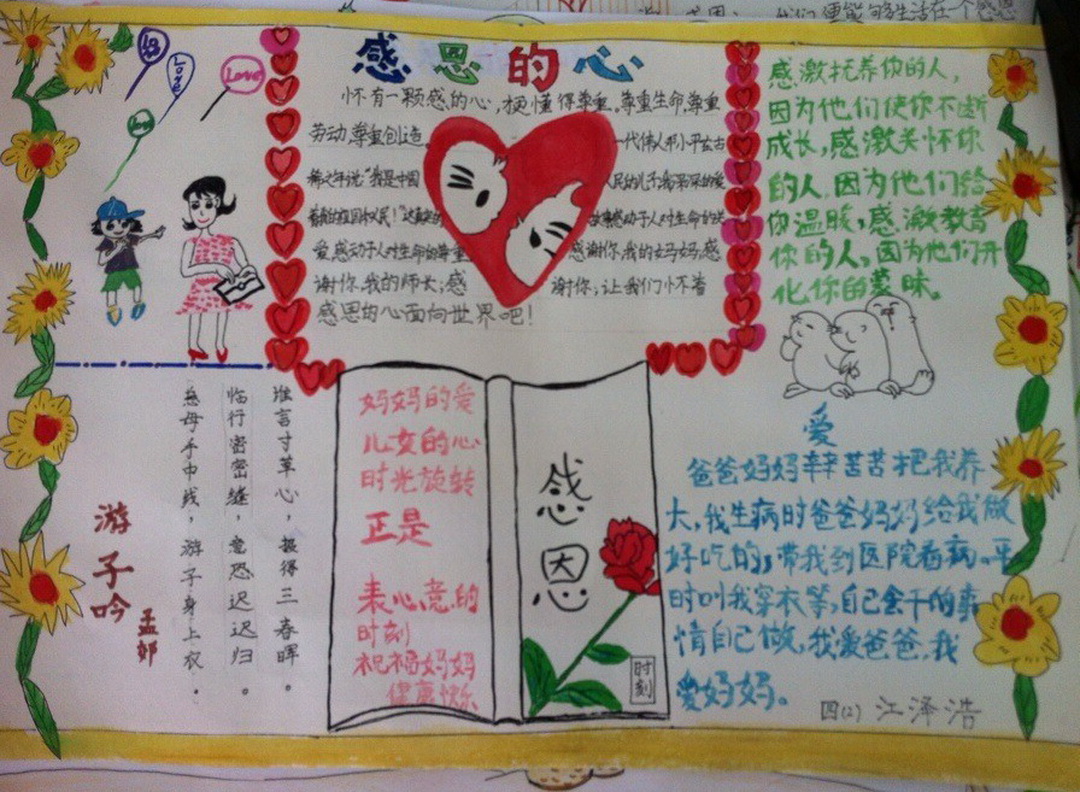 Love
Love
感恩的心
怀有一颗感的心,更懂得尊重。尊重生命,尊重
劳动,尊重创造。一代伟人邓小平玄古
稀之年说:“我是中国人民的儿子,我深深的爱
着我的祖国和人民!”
爱,感动于人对生命的尊重
感谢你,我的妈妈,感
谢你,我的师长;感谢你,让我们怀着
感恩的心面向世界吧!
感激抚养你的人,
因为他们使你不断
成长,感激关怀你
的人,因为他们给
你温暖,感激教育
你的人,因为他们开
化你的蒙昧。
游子吟
孟郊
慈母手中线,游子身上衣.
临行密密缝,意恐迟迟归。
谁言寸草心,报得三春晖。
妈妈的爱
儿女的心
时光旋转
正是
表心意的
时刻
祝福妈妈
健康快乐
感恩
时刻
爱
爸爸妈妈辛辛苦苦把我养
大,我生病时爸爸妈妈给我做
好吃的,带我到医院看病。平
时叫我穿衣等,自己会干的事
情自己做,我爱爸爸,我
爱妈妈。
四(2) 江泽浩